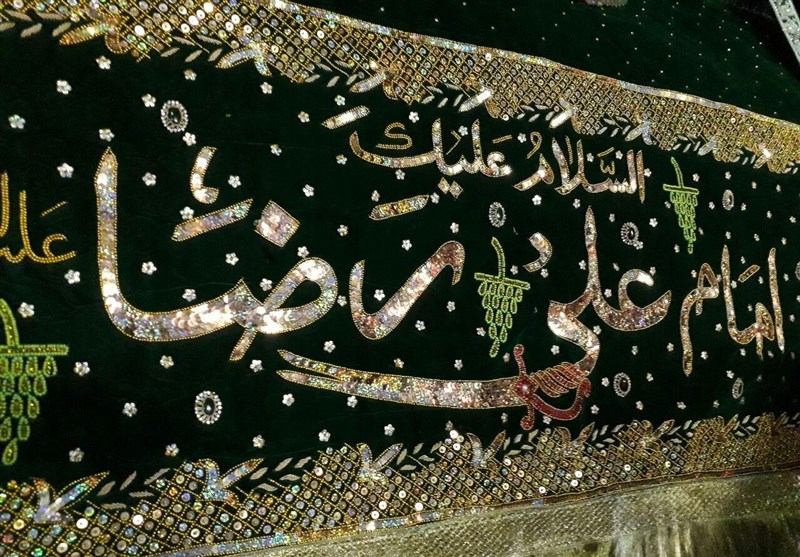 السَّلامُ عَلیک
امام علی رضا